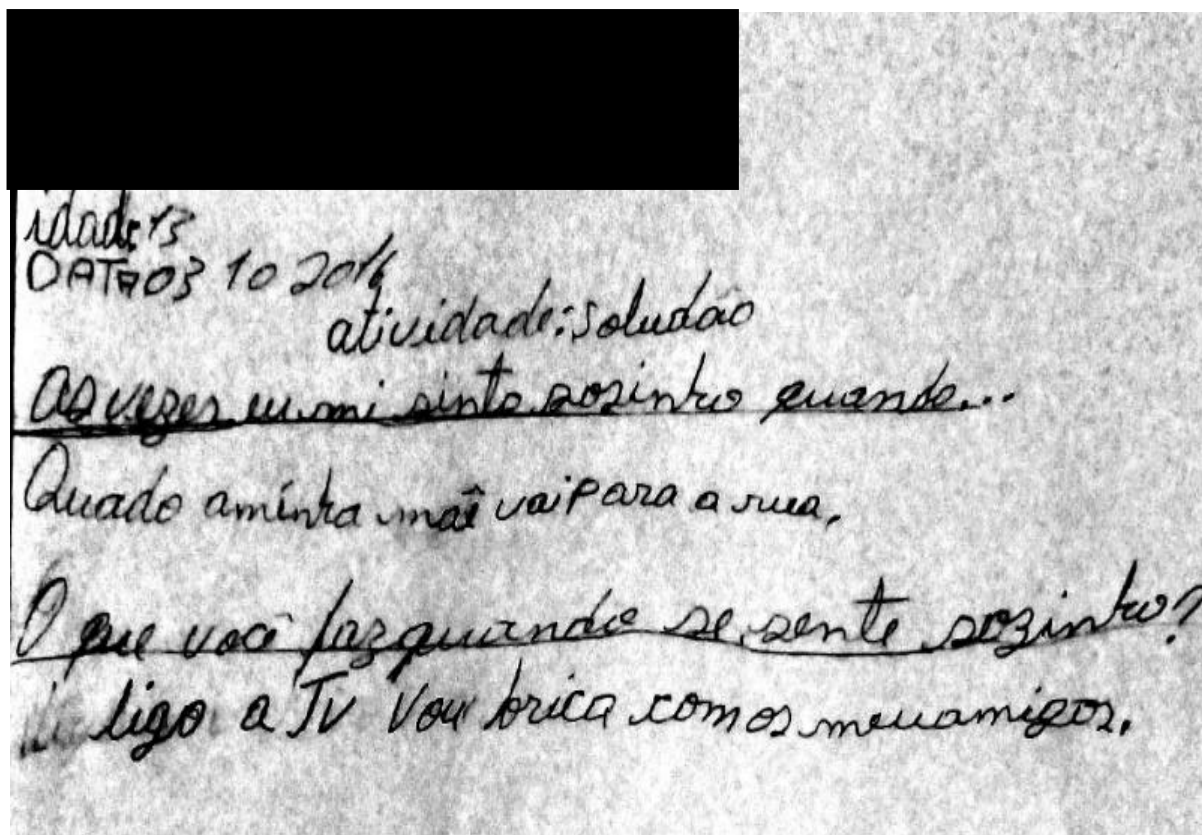 idade: 13
DATA 03 10 2016
atividade: soludão
As vezes eu mi sinto sozinho quando...
Quado a minha mãe vai para a rua.
O que você faz quando se sente sozinho?
ligo a TV Vou brica com os meu amigos.